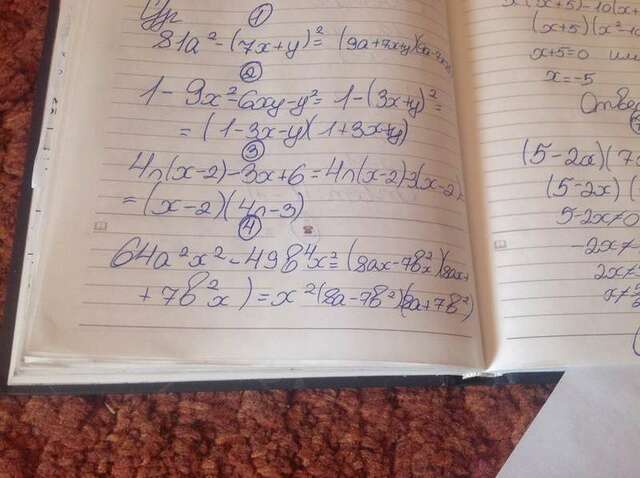 ①
81a² - (7x+y)² = (9a+7x+y)(9a-7x-y)
②
1 - 9x² - 6xy - y² = 1 - (3x+y)² =
= (1-3x-y)(1+3x+y)
③
4n(x-2) - 3x + 6 = 4n(x-2) - 3(x-2) =
= (x-2)(4n-3)
④
64a²x² - 49b⁴x² = (8ax - 7b²x)(8ax +
+ 7b²x) = x²(8a - 7b²)(8a + 7b²)
(x+5)(x²-10
x+5=0 или
x=-5
Ответ
(5-2x)(7
(5-2x)(
5-2x≠0
-2x≠
2x≠
x≠